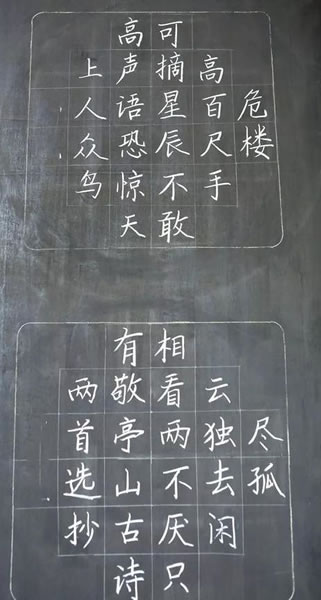 危楼
高百尺手
可摘星辰不敢
高声语恐惊天
上人众鸟
尽孤
云独去闲
相看两不厌只
有敬亭山古诗
两首选抄